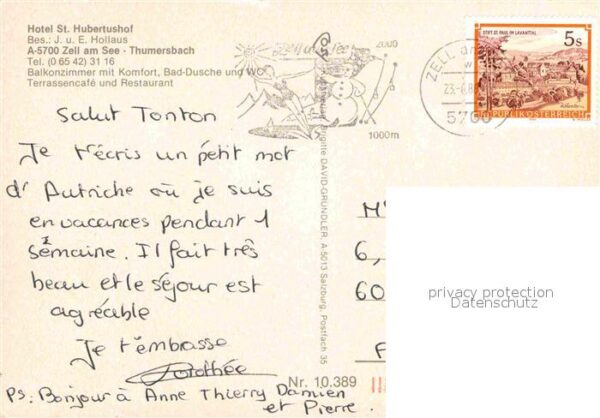 Hotel St. Hubertushof
Bes.: J. u. E. Hollaus
A-5700 Zell am See · Thumersbach
Tel. (0 65 42) 31 16
Balkonzimmer mit Komfort, Bad-Dusche und WC
Terrassencafé und Restaurant
Salut Tonton
Je t'écris un petit mot
d'Autriche où je suis
en vacances pendant 1
semaine. Il fait très
beau et le séjour est
agréable
Je t'embrasse
Dorothée
Ps: Bonjour à Anne Thierry Damien
et Pierre.
Nr. 10.389
2000
1000m
Brigitte DAVID-GRÜNDLER, A-5013 Salzburg, Postfach 35
ZELL am
5700
STIFT ST. PAUL IM LAVANTTAL
5s
REPUBLIK ÖSTERREICH
6,
60
privacy protection
Datenschutz